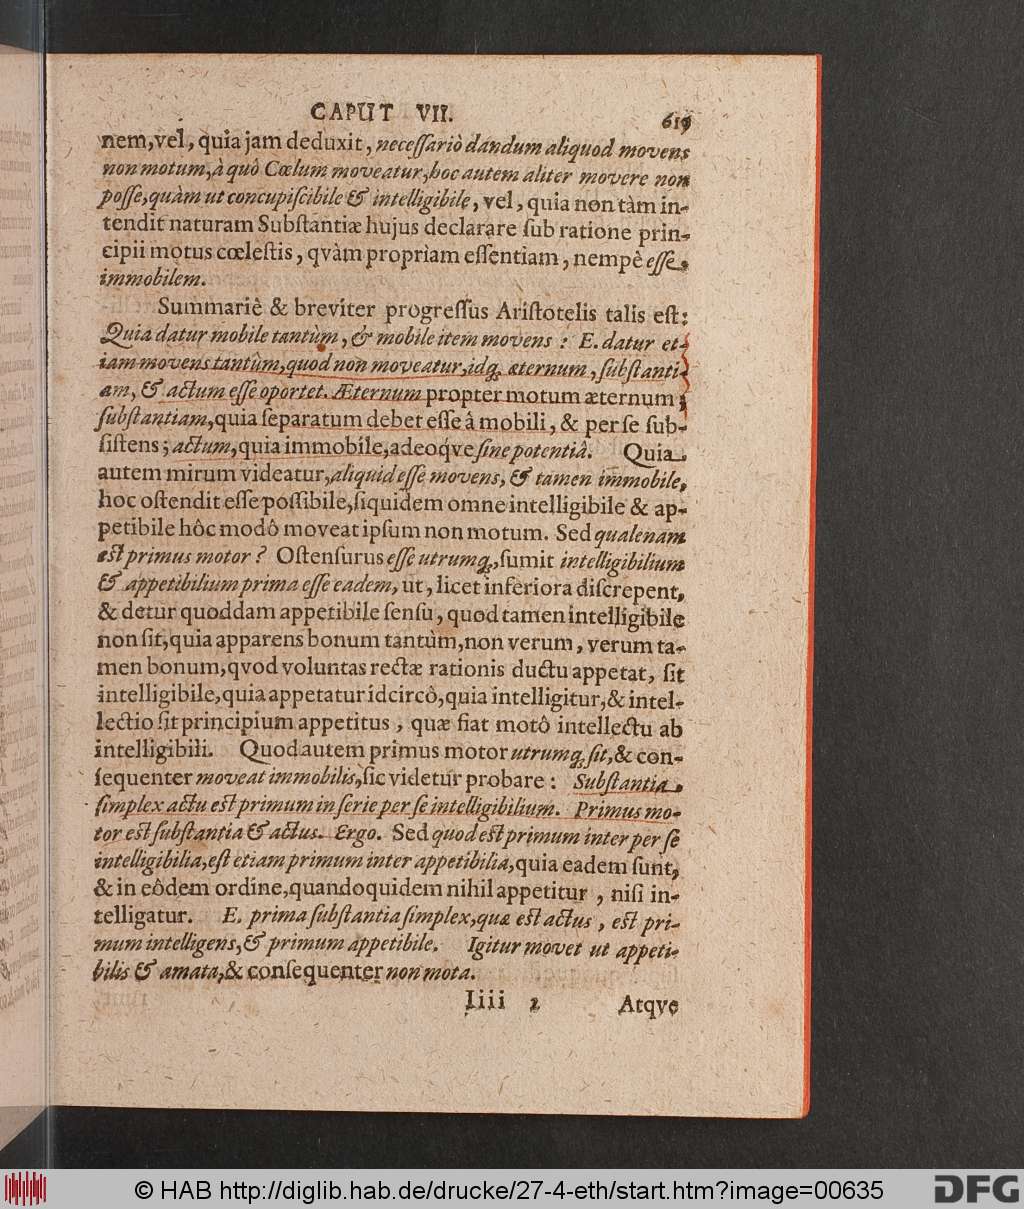 CAPUT VII. 619
nem, vel, quia jam deduxit, necessariò dandum aliquod movens
non motum, à quô Cœlum moveatur, hoc autem aliter movere non
posse, quàm ut concupiscibile & intelligibile, vel, quia non tàm in-
tendit naturam Substantiæ hujus declarare sub ratione prin-
cipii motus cœlestis, qvàm propriam essentiam, nempè esse
immobilem.
Summariè & breviter progressus Aristotelis talis est:
Quia datur mobile tantùm, & mobile item movens: E. datur et-
iam movens tantùm, quod non moveatur, idq; æternum, substanti-
am, & actum esse oportet. Æternum propter motum æternum;
substantiam, quia separatum debet esse â mobili, & per se sub-
sistens; actum, quia immobile, adeoq́ve sine potentiâ. Quia
autem mirum videatur, aliquid esse movens, & tamen immobile,
hoc ostendit esse possibile, siquidem omne intelligibile & ap-
petibile hôc modô moveat ipsum non motum. Sed qualenam
est primus motor? Ostensurus esse utrumq;, sumit intelligibilium
& appetibilium prima esse eadem, ut, licet inferiora discrepent,
& detur quoddam appetibile sensu, quod tamen intelligibile
non sit, quia apparens bonum tantùm, non verum, verum ta-
men bonum, qvod voluntas rectæ rationis ductu appetat, sit
intelligibile, quia appetatur idcircô, quia intelligitur, & intel-
lectio sit principium appetitus, quæ fiat motô intellectu ab
intelligibili. Quod autem primus motor utrumq; sit, & con-
sequenter moveat immobilis, sic videtur probare: Substantia
simplex actu est primum in serie per se intelligibilium. Primus mo-
tor est substantia & actus. Ergo. Sed quod est primum inter per se
intelligibilia, est etiam primum inter appetibilia, quia eadem sunt,
& in eôdem ordine, quandoquidem nihil appetitur, nisi in-
telligatur. E. prima substantia simplex, quæ est actus, est pri-
mum intelligens, & primum appetibile. Igitur movet ut appeti-
bilis & amata, & consequenter non mota.
Iiii 2 Atqve
© HAB http://diglib.hab.de/drucke/27-4-eth/start.htm?image=00635 DFG